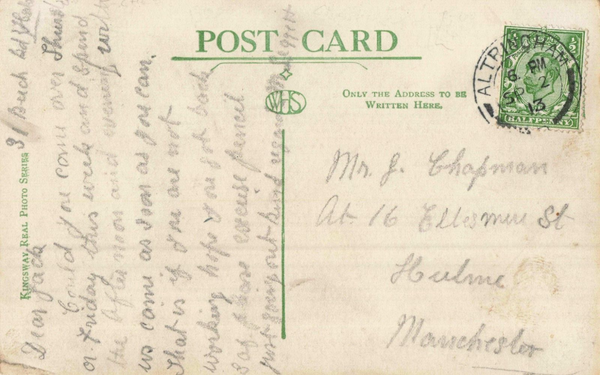 POST CARD
WHS
ONLY THE ADDRESS TO BE
WRITTEN HERE.
ALTRINCHAM
6 PM
SP 2
13
HALFPENNY
KINGSWAY REAL PHOTO SERIES
31 Beech Rd
Dear Jack
Could you come over Thurs
or Friday this week and spend
the afternoon and evening with
us come as soon as you can.
That is if you are not
working hope you got back
safe please excuse pencil
just going out kind regards
Mr. J. Chapman
At. 16 Ellesmere St
Hulme
Manchester